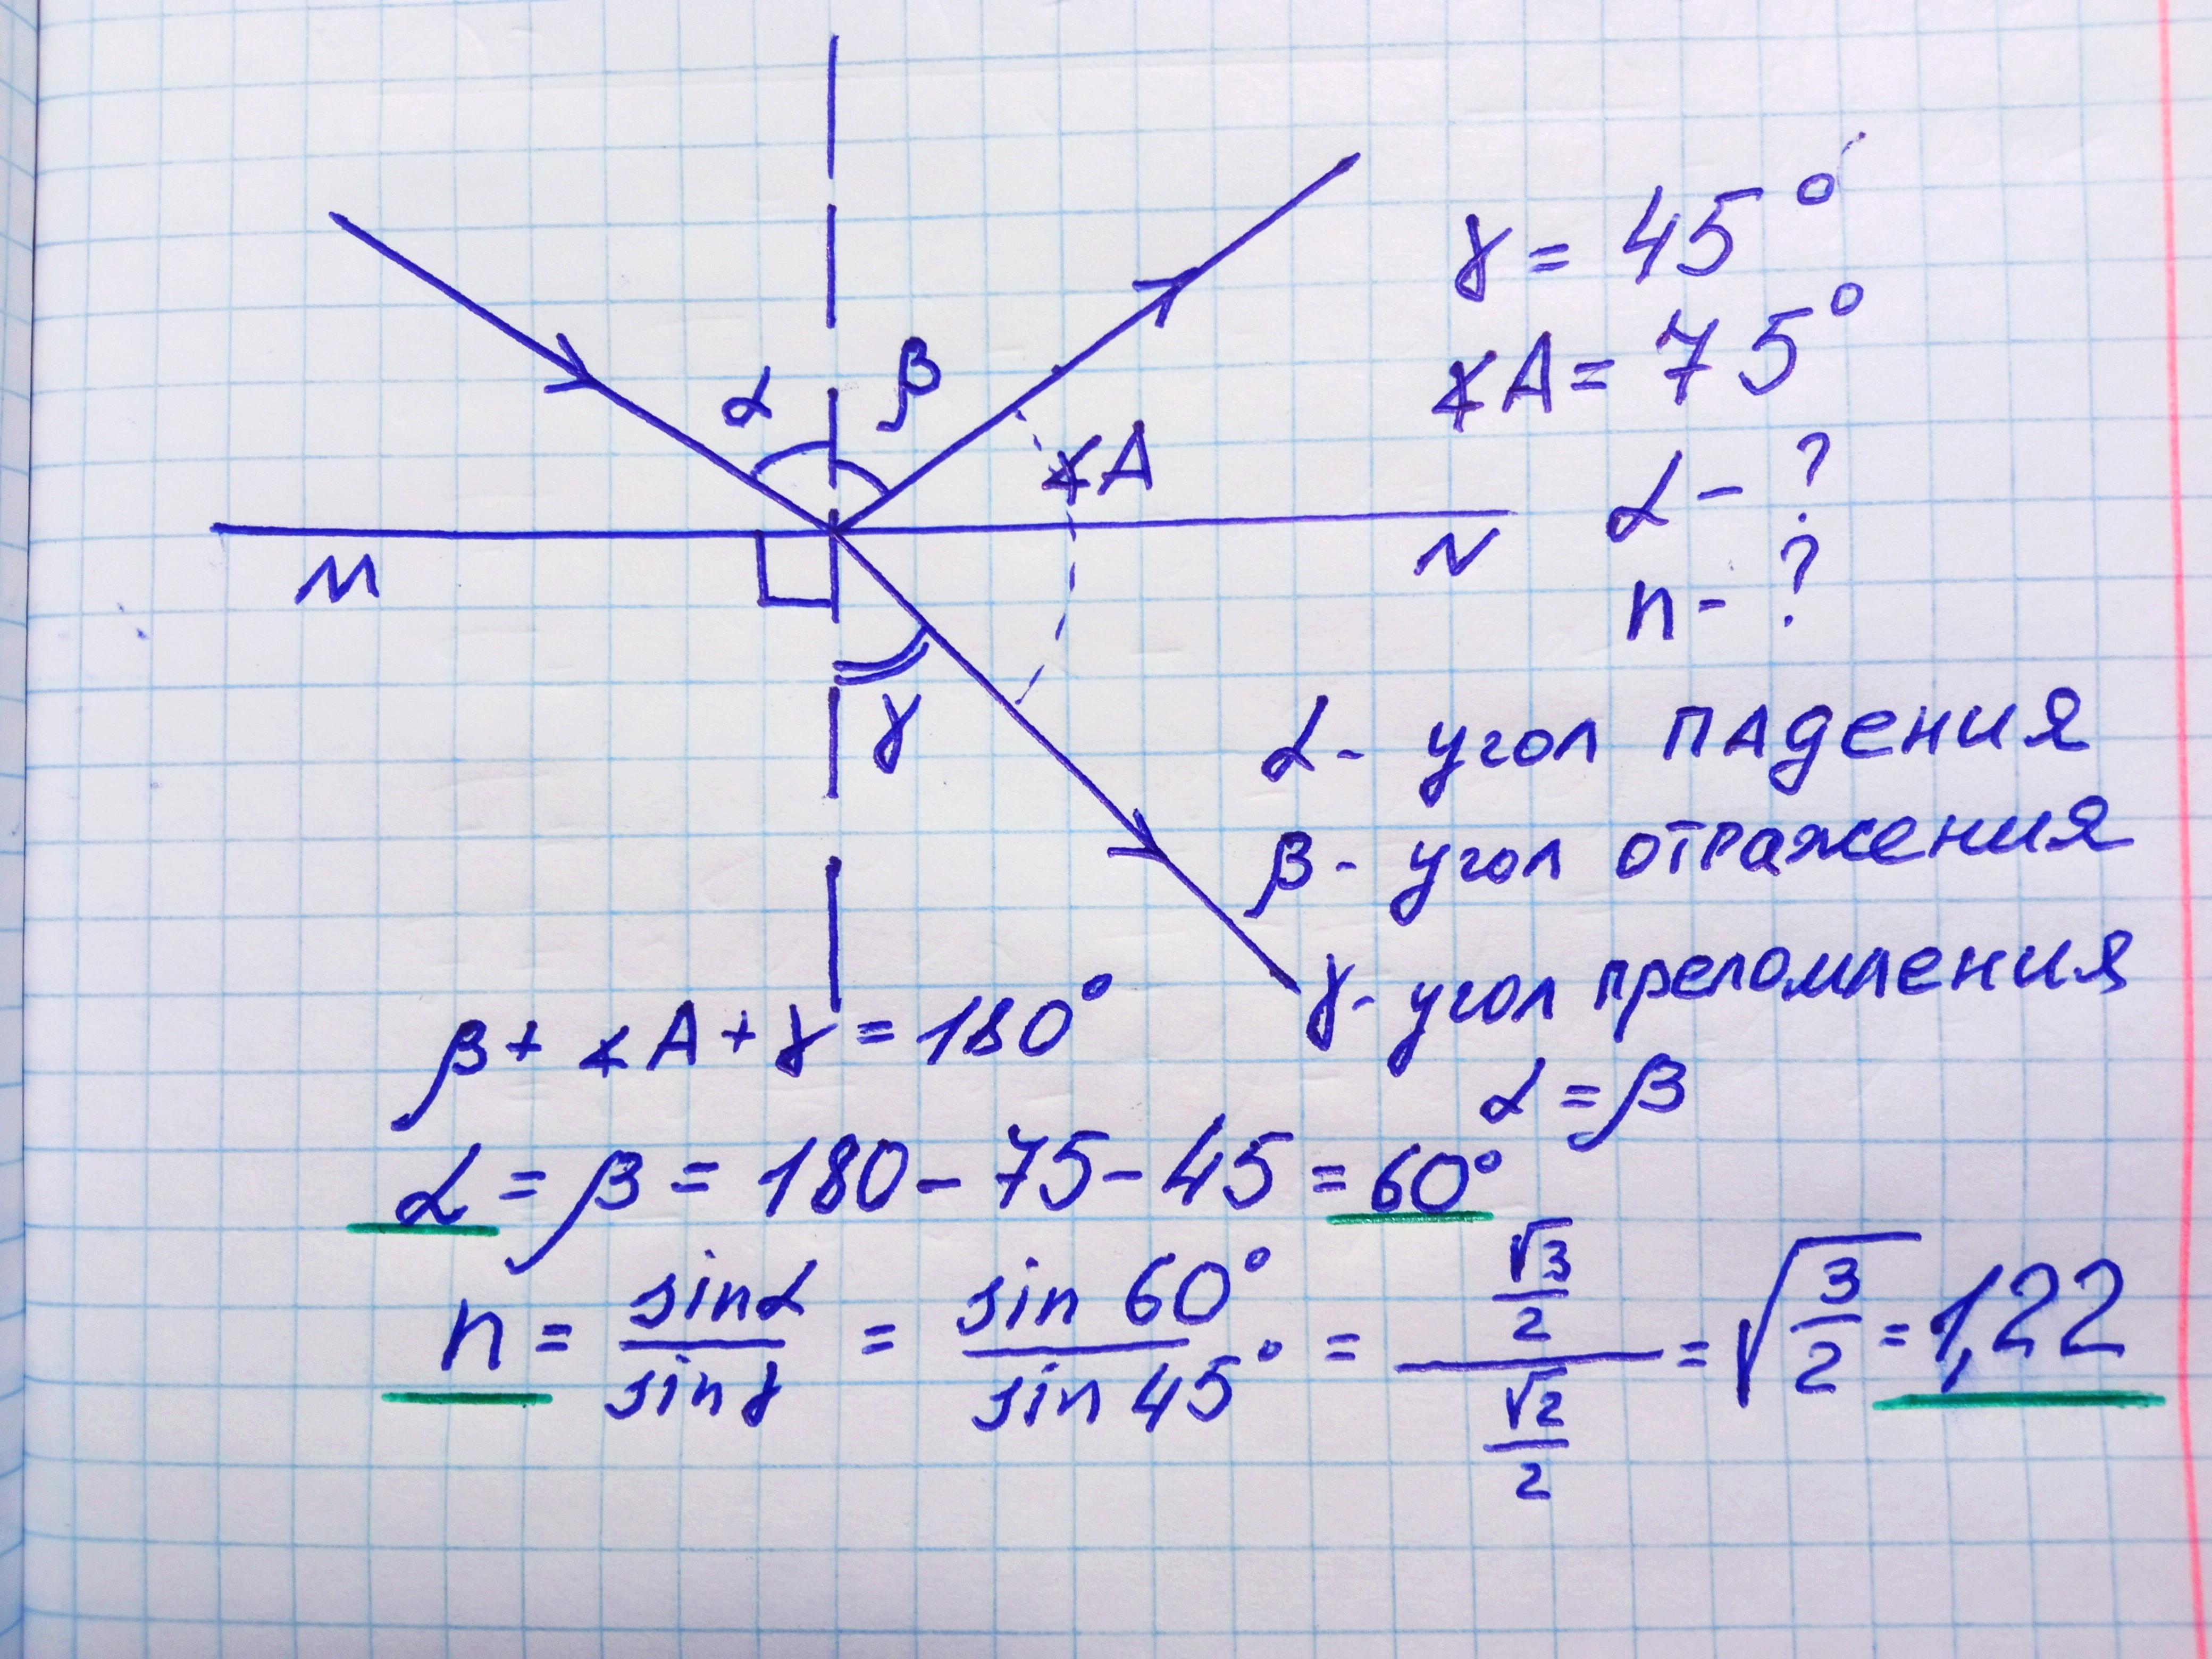 γ = 45°
∡A = 75°
α - ?
n - ?
α β
∡A
M N
γ
α - угол падения
β - угол отражения
γ - угол преломления
β + ∡A + γ = 180°
α = β
α = β = 180 - 75 - 45 = 60°
n = sinα / sinγ = sin 60° / sin 45° = (√3/2) / (√2/2) = √(3/2) = 1,22